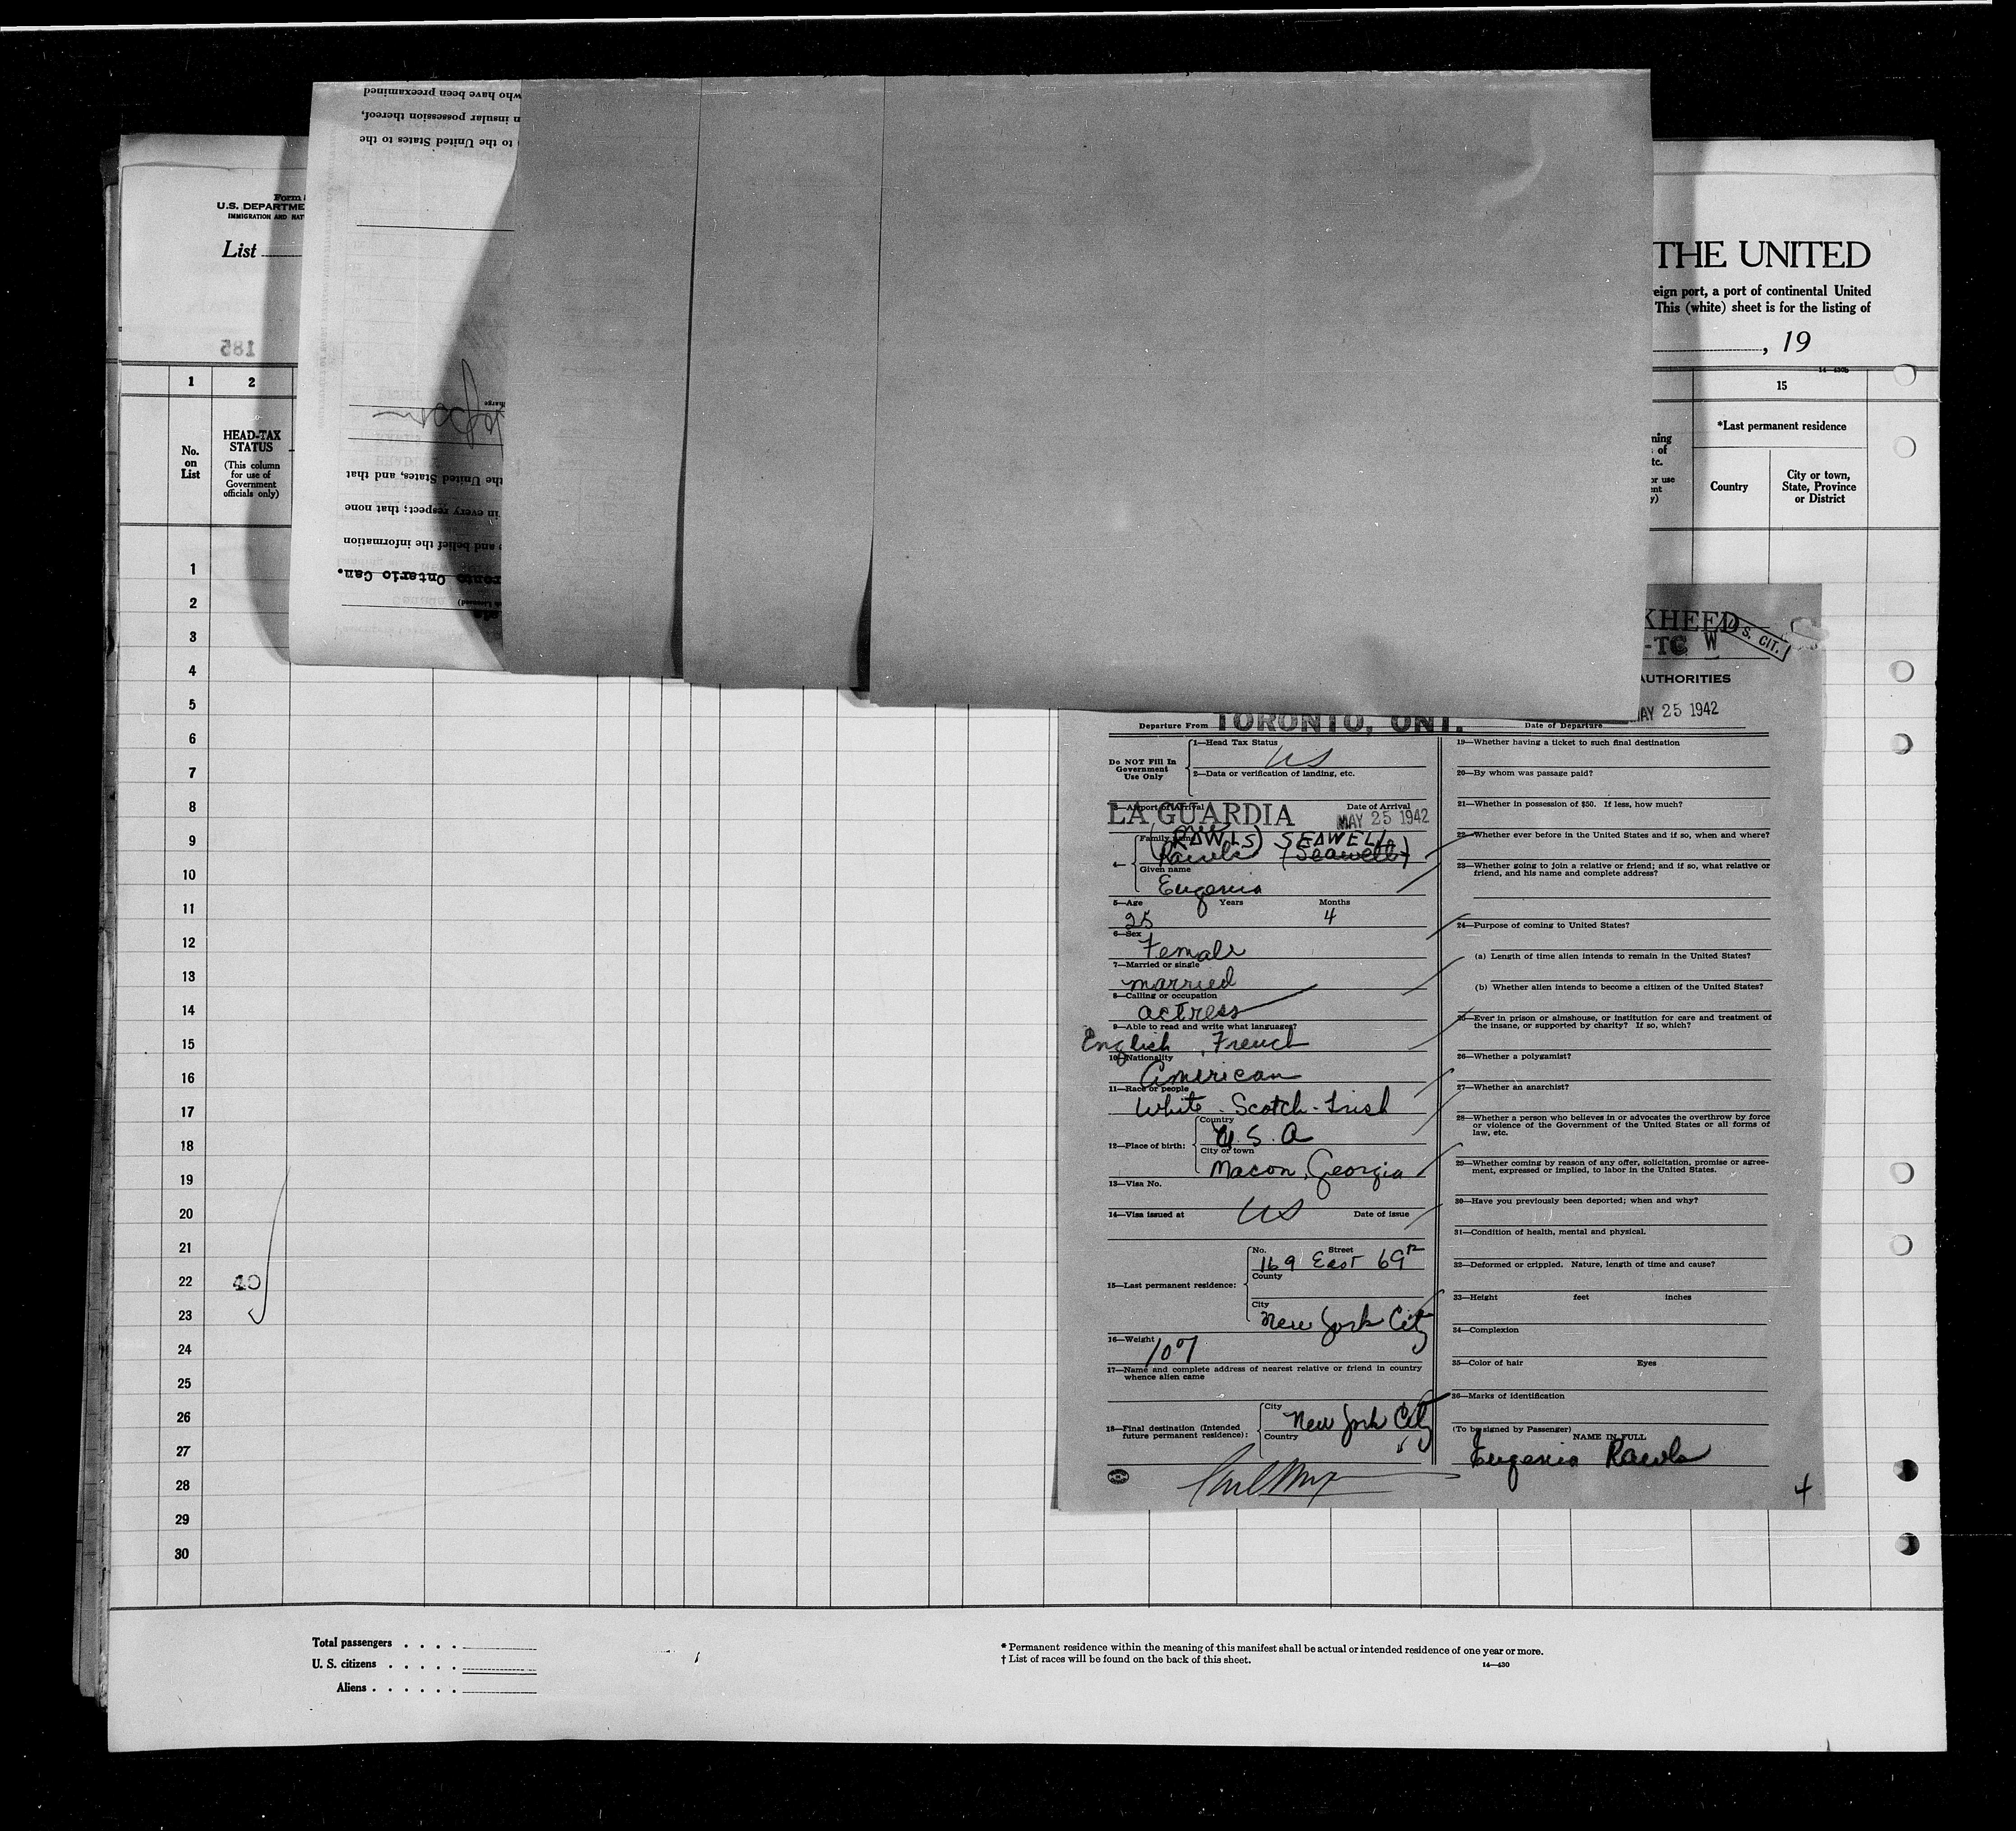 who have been preexamined
n insular possession thereof,
to the United States to the
Form
U.S. DEPARTME
IMMIGRATION AND NAT
List
THE UNITED
eign port, a port of continental United
This (white) sheet is for the listing of
, 19
185
1
2
15
No.
on
List
HEAD-TAX
STATUS
(This column
for use of
Government
officials only)
the United States, and that
in every respect; that none
and belief the information
ronto Ontario Can.
*Last permanent residence
Country
City or town,
State, Province
or District
1
2
3
4
5
6
7
8
9
10
11
12
13
14
15
16
17
18
19
20
21
22
40
23
24
25
26
27
28
29
30
KHEED
U.S. CIT.
-TC W
AUTHORITIES
Departure From TORONTO, ONT.
Date of Departure MAY 25 1942
Do NOT Fill In
Government
Use Only
1—Head Tax Status
US
2—Data or verification of landing, etc.
3—Airport of Arrival
Date of Arrival
LA GUARDIA MAY 25 1942
4—
Family name
(RAWLS) SEAWELL
Rawls (Seawell)
Given name
Eugenia
5—Age Years Months
25 4
6—Sex
Female
7—Married or single
married
8—Calling or occupation
actress
9—Able to read and write what languages?
English, French
10—Nationality
American
11—Race or people
White - Scotch-Irish
12—Place of birth:
Country
U.S.A
City or town
Macon, Georgia
13—Visa No.
14—Visa issued at US Date of issue
15—Last permanent residence:
No. Street
169 East 69th
County
City
New York City
16—Weight
107
17—Name and complete address of nearest relative or friend in country
whence alien came
18—Final destination (Intended
future permanent residence):
City
New York City
Country
19—Whether having a ticket to such final destination
20—By whom was passage paid?
21—Whether in possession of $50. If less, how much?
22—Whether ever before in the United States and if so, when and where?
23—Whether going to join a relative or friend; and if so, what relative or
friend, and his name and complete address?
24—Purpose of coming to United States?
(a) Length of time alien intends to remain in the United States?
(b) Whether alien intends to become a citizen of the United States?
25—Ever in prison or almshouse, or institution for care and treatment of
the insane, or supported by charity? If so, which?
26—Whether a polygamist?
27—Whether an anarchist?
28—Whether a person who believes in or advocates the overthrow by force
or violence of the Government of the United States or all forms of
law, etc.
29—Whether coming by reason of any offer, solicitation, promise or agree-
ment, expressed or implied, to labor in the United States.
30—Have you previously been deported; when and why?
31—Condition of health, mental and physical.
32—Deformed or crippled. Nature, length of time and cause?
33—Height feet inches
34—Complexion
35—Color of hair Eyes
36—Marks of identification
(To be signed by Passenger)
NAME IN FULL
Eugenia Rawls
4
Total passengers . . . .
U. S. citizens . . . . .
Aliens . . . . . .
* Permanent residence within the meaning of this manifest shall be actual or intended residence of one year or more.
† List of races will be found on the back of this sheet.
14—430